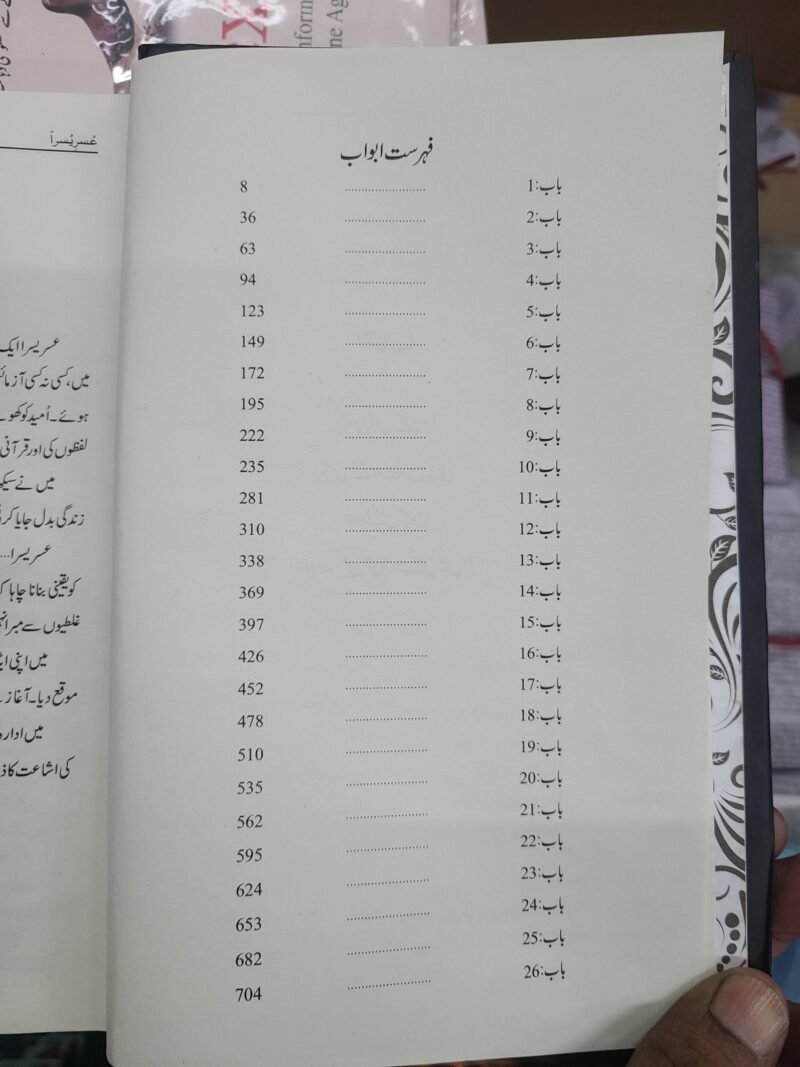 عُسرِیُسراً
عسر یسرا ایک
میں، کسی نہ کسی
ہوئے۔ اُمید کو
لفظوں کی اور قرآنی
میں نے
زندگی بدل جایا
عسر یسرا...
کو یقینی بنانا چاہا
غلطیوں سے مبرا
میں اپنی
موقع دیا۔ آغاز
میں
کی اشاعت کا
فہرست ابواب
باب:1 ........................ 8
باب:2 ........................ 36
باب:3 ........................ 63
باب:4 ........................ 94
باب:5 ........................ 123
باب:6 ........................ 149
باب:7 ........................ 172
باب:8 ........................ 195
باب:9 ........................ 222
باب:10 ........................ 235
باب:11 ........................ 281
باب:12 ........................ 310
باب:13 ........................ 338
باب:14 ........................ 369
باب:15 ........................ 397
باب:16 ........................ 426
باب:17 ........................ 452
باب:18 ........................ 478
باب:19 ........................ 510
باب:20 ........................ 535
باب:21 ........................ 562
باب:22 ........................ 595
باب:23 ........................ 624
باب:24 ........................ 653
باب:25 ........................ 682
باب:26 ........................ 704